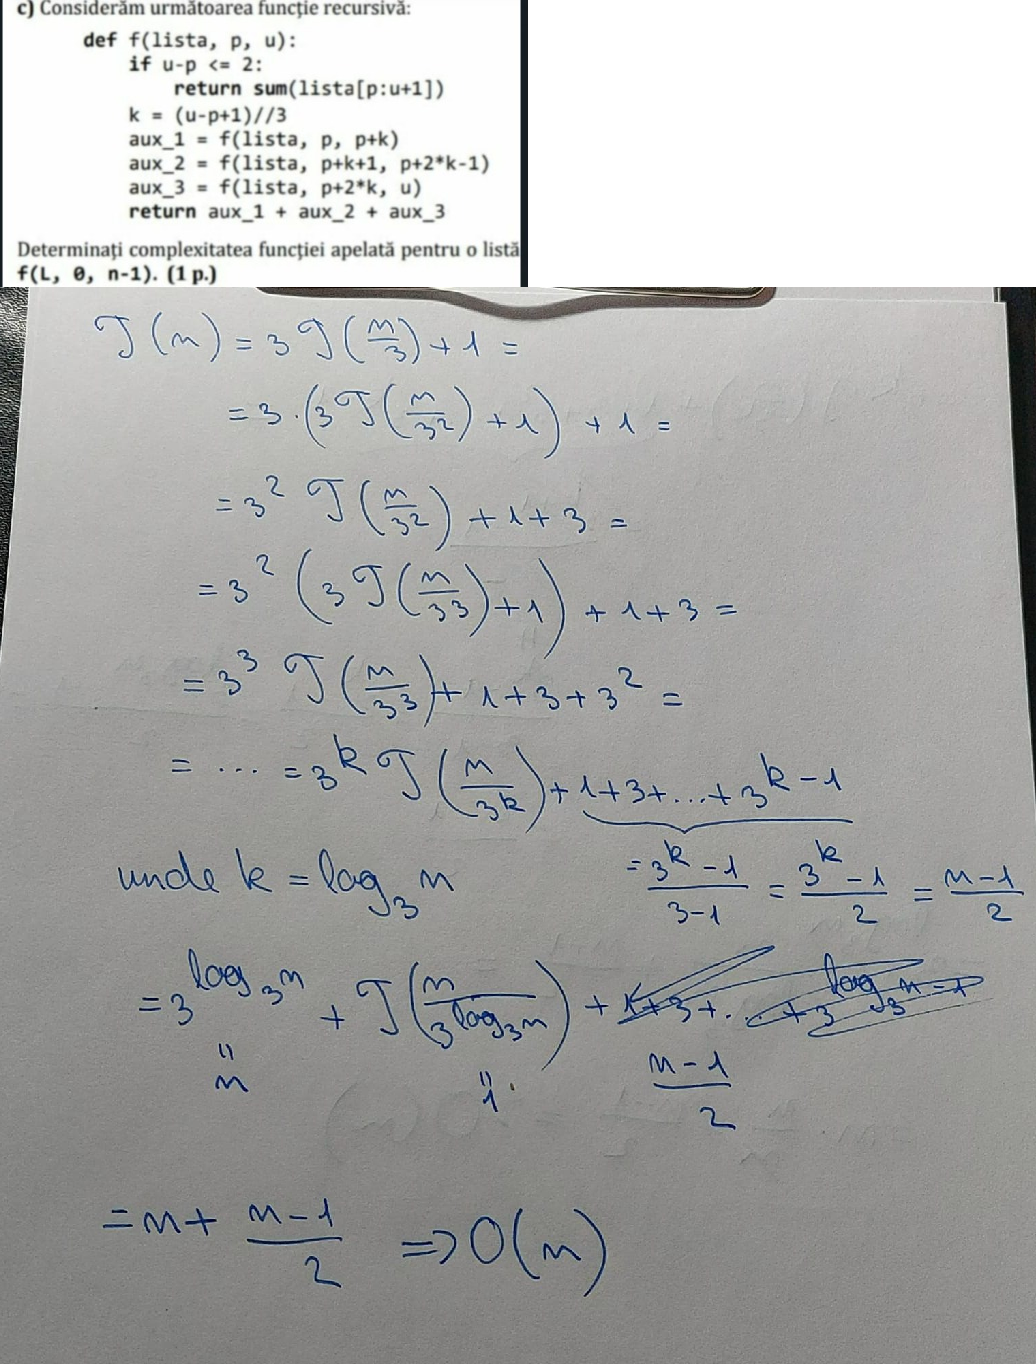 c) Considerăm următoarea funcție recursivă:
def f(lista, p, u):
if u-p <= 2:
return sum(lista[p:u+1])
k = (u-p+1)//3
aux_1 = f(lista, p, p+k)
aux_2 = f(lista, p+k+1, p+2*k-1)
aux_3 = f(lista, p+2*k, u)
return aux_1 + aux_2 + aux_3
Determinați complexitatea funcției apelată pentru o listă
f(L, 0, n-1). (1 p.)
T(n) = 3 T(n/3) + 1 =
= 3·(3T(n/3²) + 1) + 1 =
= 3² T(n/3²) + 1 + 3 =
= 3² (3T(n/3³) + 1) + 1 + 3 =
= 3³ T(n/3³) + 1 + 3 + 3² =
= ... = 3^k T(n/3^k) + 1+3+...+3^k-1
unde k = log₃ n
= 3^k-1/3-1 = 3^k-1/2 = n-1/2
= 3^log₃n + T(n/3^log₃n) +
" n
" 1
n-1/2
= n + n-1/2 => O(n)